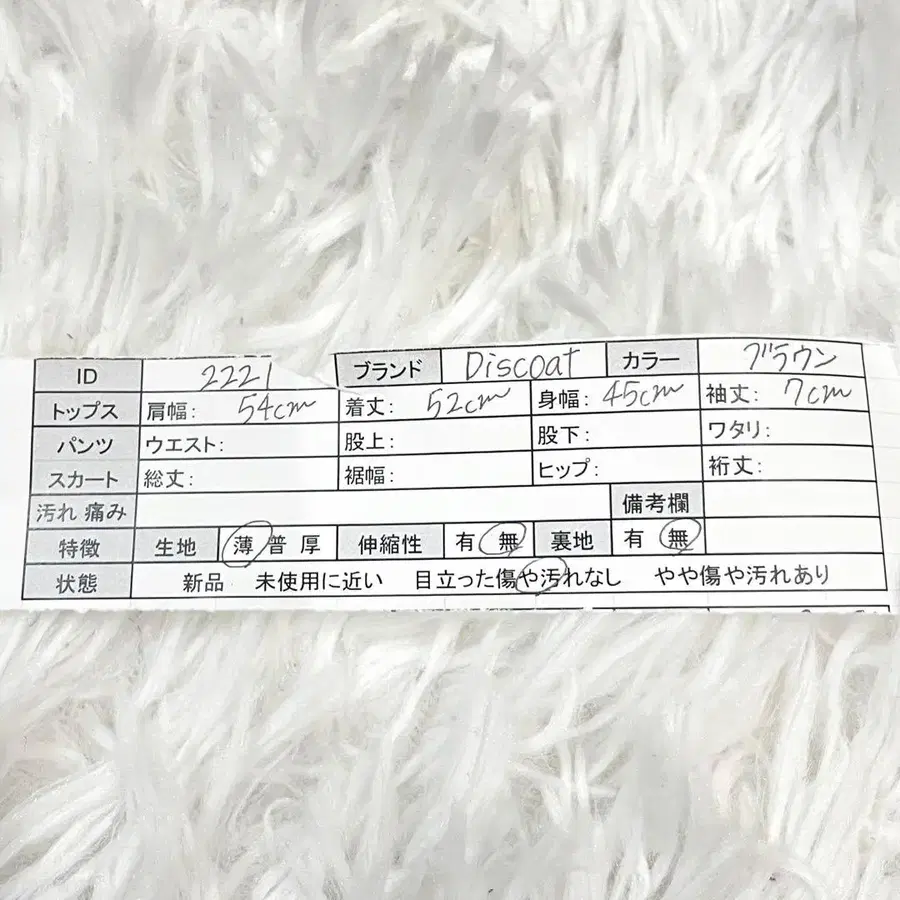 ID 2221 ブランド Discoat カラー ブラウン
トップス 肩幅: 54cm 着丈: 52cm 身幅: 45cm 袖丈: 7cm
パンツ ウエスト: 股上: 股下: ワタリ:
スカート 総丈: 裾幅: ヒップ: 裄丈:
汚れ 痛み 備考欄
特徴 生地 薄 普 厚 伸縮性 有 無 裏地 有 無
状態 新品 未使用に近い 目立った傷や汚れなし やや傷や汚れあり